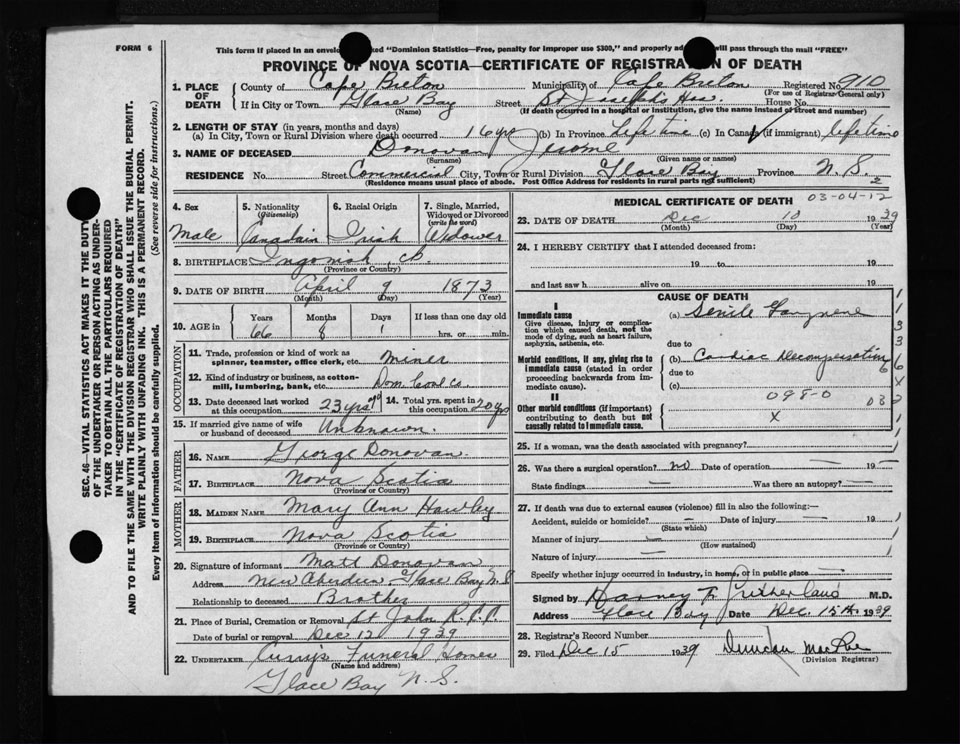 FORM 6
This form if placed in an envelo ked "Dominion Statistics—Free, penalty for improper use $300," and properly add will pass through the mail "FREE"
PROVINCE OF NOVA SCOTIA—CERTIFICATE OF REGISTRATION OF DEATH
SEC. 46—VITAL STATISTICS ACT MAKES IT THE DUTY
OF THE UNDERTAKER OR PERSON ACTING AS UNDER-
TAKER TO OBTAIN ALL THE PARTICULARS REQUIRED
IN THE "CERTIFICATE OF REGISTRATION OF DEATH"
AND TO FILE THE SAME WITH THE DIVISION REGISTRAR WHO SHALL ISSUE THE BURIAL PERMIT.
WRITE PLAINLY WITH UNFADING INK. THIS IS A PERMANENT RECORD.
Every item of information should be carefully supplied. (See reverse side for instructions.)
1. PLACE OF DEATH County of Cape Breton Municipality of Cape Breton Registered No. 910
(For use of Registrar General only)
If in City or Town Glace Bay Street St Joseph's Hos House No.
(Name) (If death occurred in a hospital or institution, give the name instead of street and number)
2. LENGTH OF STAY (in years, months and days)
(a) In City, Town or Rural Division where death occurred 16 yrs (b) In Province Life time (c) In Canada (if immigrant) lifetime
3. NAME OF DECEASED Donovan Jerome
(Surname) (Given name or names)
RESIDENCE No. Street Commercial City, Town or Rural Division Glace Bay Province N.S.
(Residence means usual place of abode. Post Office Address for residents in rural parts not sufficient) 2
4. Sex 5. Nationality (Citizenship) 6. Racial Origin 7. Single, Married, Widowed or Divorced (write the word)
Male Canadain Irish Widower
8. BIRTHPLACE Ingonish, CB.
(Province or Country)
9. DATE OF BIRTH April 9 1873
(Month) (Day) (Year)
10. AGE in Years Months Days If less than one day old
66 8 1 hrs. or min.
OCCUPATION
11. Trade, profession or kind of work as spinner, teamster, office clerk, etc. Miner
12. Kind of industry or business, as cotton-mill, lumbering, bank, etc. Dom. Coal Co.
13. Date deceased last worked at this occupation 23 yrs ago 14. Total yrs. spent in this occupation 20 yrs
15. If married give name of wife or husband of deceased Unknown.
FATHER
16. NAME George Donovan.
17. BIRTHPLACE Nova Scotia
(Province or Country)
MOTHER
18. MAIDEN NAME Mary Ann Hawley
19. BIRTHPLACE Nova Scotia
(Province or Country)
20. Signature of informant Matt Donovan
Address New Aberdeen Glace Bay N.S
Relationship to deceased Brother
21. Place of Burial, Cremation or Removal St John
Date of burial or removal Dec 12 1939
22. UNDERTAKER Currys Funeral Home
(Name and address)
Glace Bay N.S.
MEDICAL CERTIFICATE OF DEATH 03-04-12
23. DATE OF DEATH Dec 10 1939
(Month) (Day) (Year)
24. I HEREBY CERTIFY that I attended deceased from:
19 to 19
and last saw h alive on 19
CAUSE OF DEATH
I
Immediate cause (a) Senile Gangrene
Give disease, injury or complication which caused death, not the mode of dying, such as heart failure, asphyxia, asthenia, etc. due to
Morbid conditions, if any, giving rise to immediate cause (stated in order proceeding backwards from immediate cause). (b) Cardiac Decompensation
due to
(c)
098-0
II
Other morbid conditions (if important) contributing to death but not causally related to immediate cause. X
25. If a woman, was the death associated with pregnancy?
26. Was there a surgical operation? no Date of operation — 19
State findings — Was there an autopsy? —
27. If death was due to external causes (violence) fill in also the following:—
Accident, suicide or homicide? — Date of injury — 19
(State which)
Manner of injury —
(How sustained)
Nature of injury —
Specify whether injury occurred in industry, in home, or in public place —
Signed by Harvey F Sutherland M.D.
Address Glace Bay Date Dec. 15th 1939
28. Registrar's Record Number
29. Filed Dec 15 1939 Duncan MacRae
(Division Registrar)